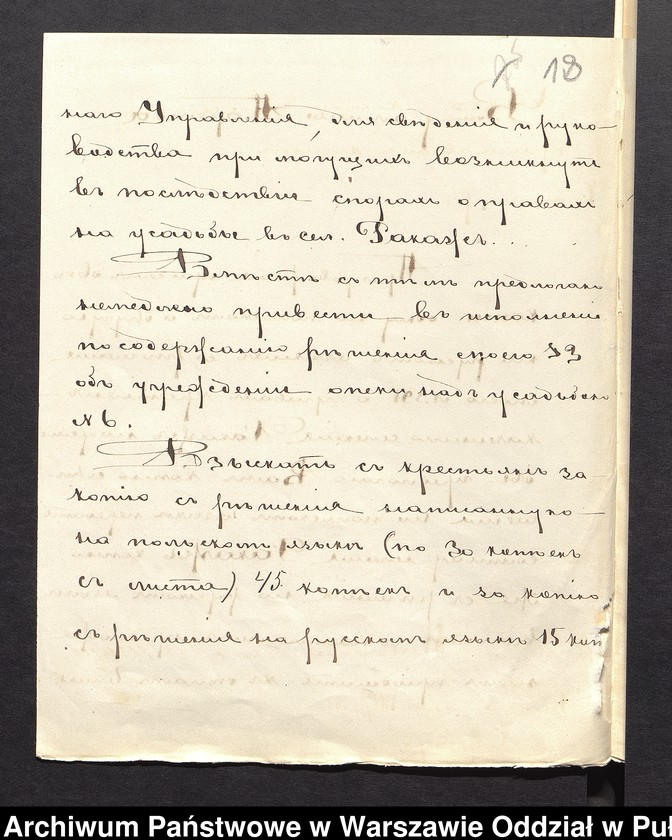 18
наго Управленiя, для свѣденiя и руко-
водства при могущихъ возникнуть
въ послѣдствiи спорахъ о правахъ
на усадьбѣ въ сел.
Вмѣстѣ съ тѣмъ предлогаю
немедлено привести въ исполненiе
по содержанiю рѣшенiя своего § 2
объ учрежденiи опеки надъ усадьбою
№ 6.
Взъискать съ крестьянъ за
копiю съ рѣшенiя написанную
на польскомъ языкѣ (по 30 копѣекъ
съ листа) 45 копѣекъ и за копiю
съ рѣшенiя на русскомъ языкѣ 15 коп
Archiwum Państwowe w Warszawie Oddział w Pu